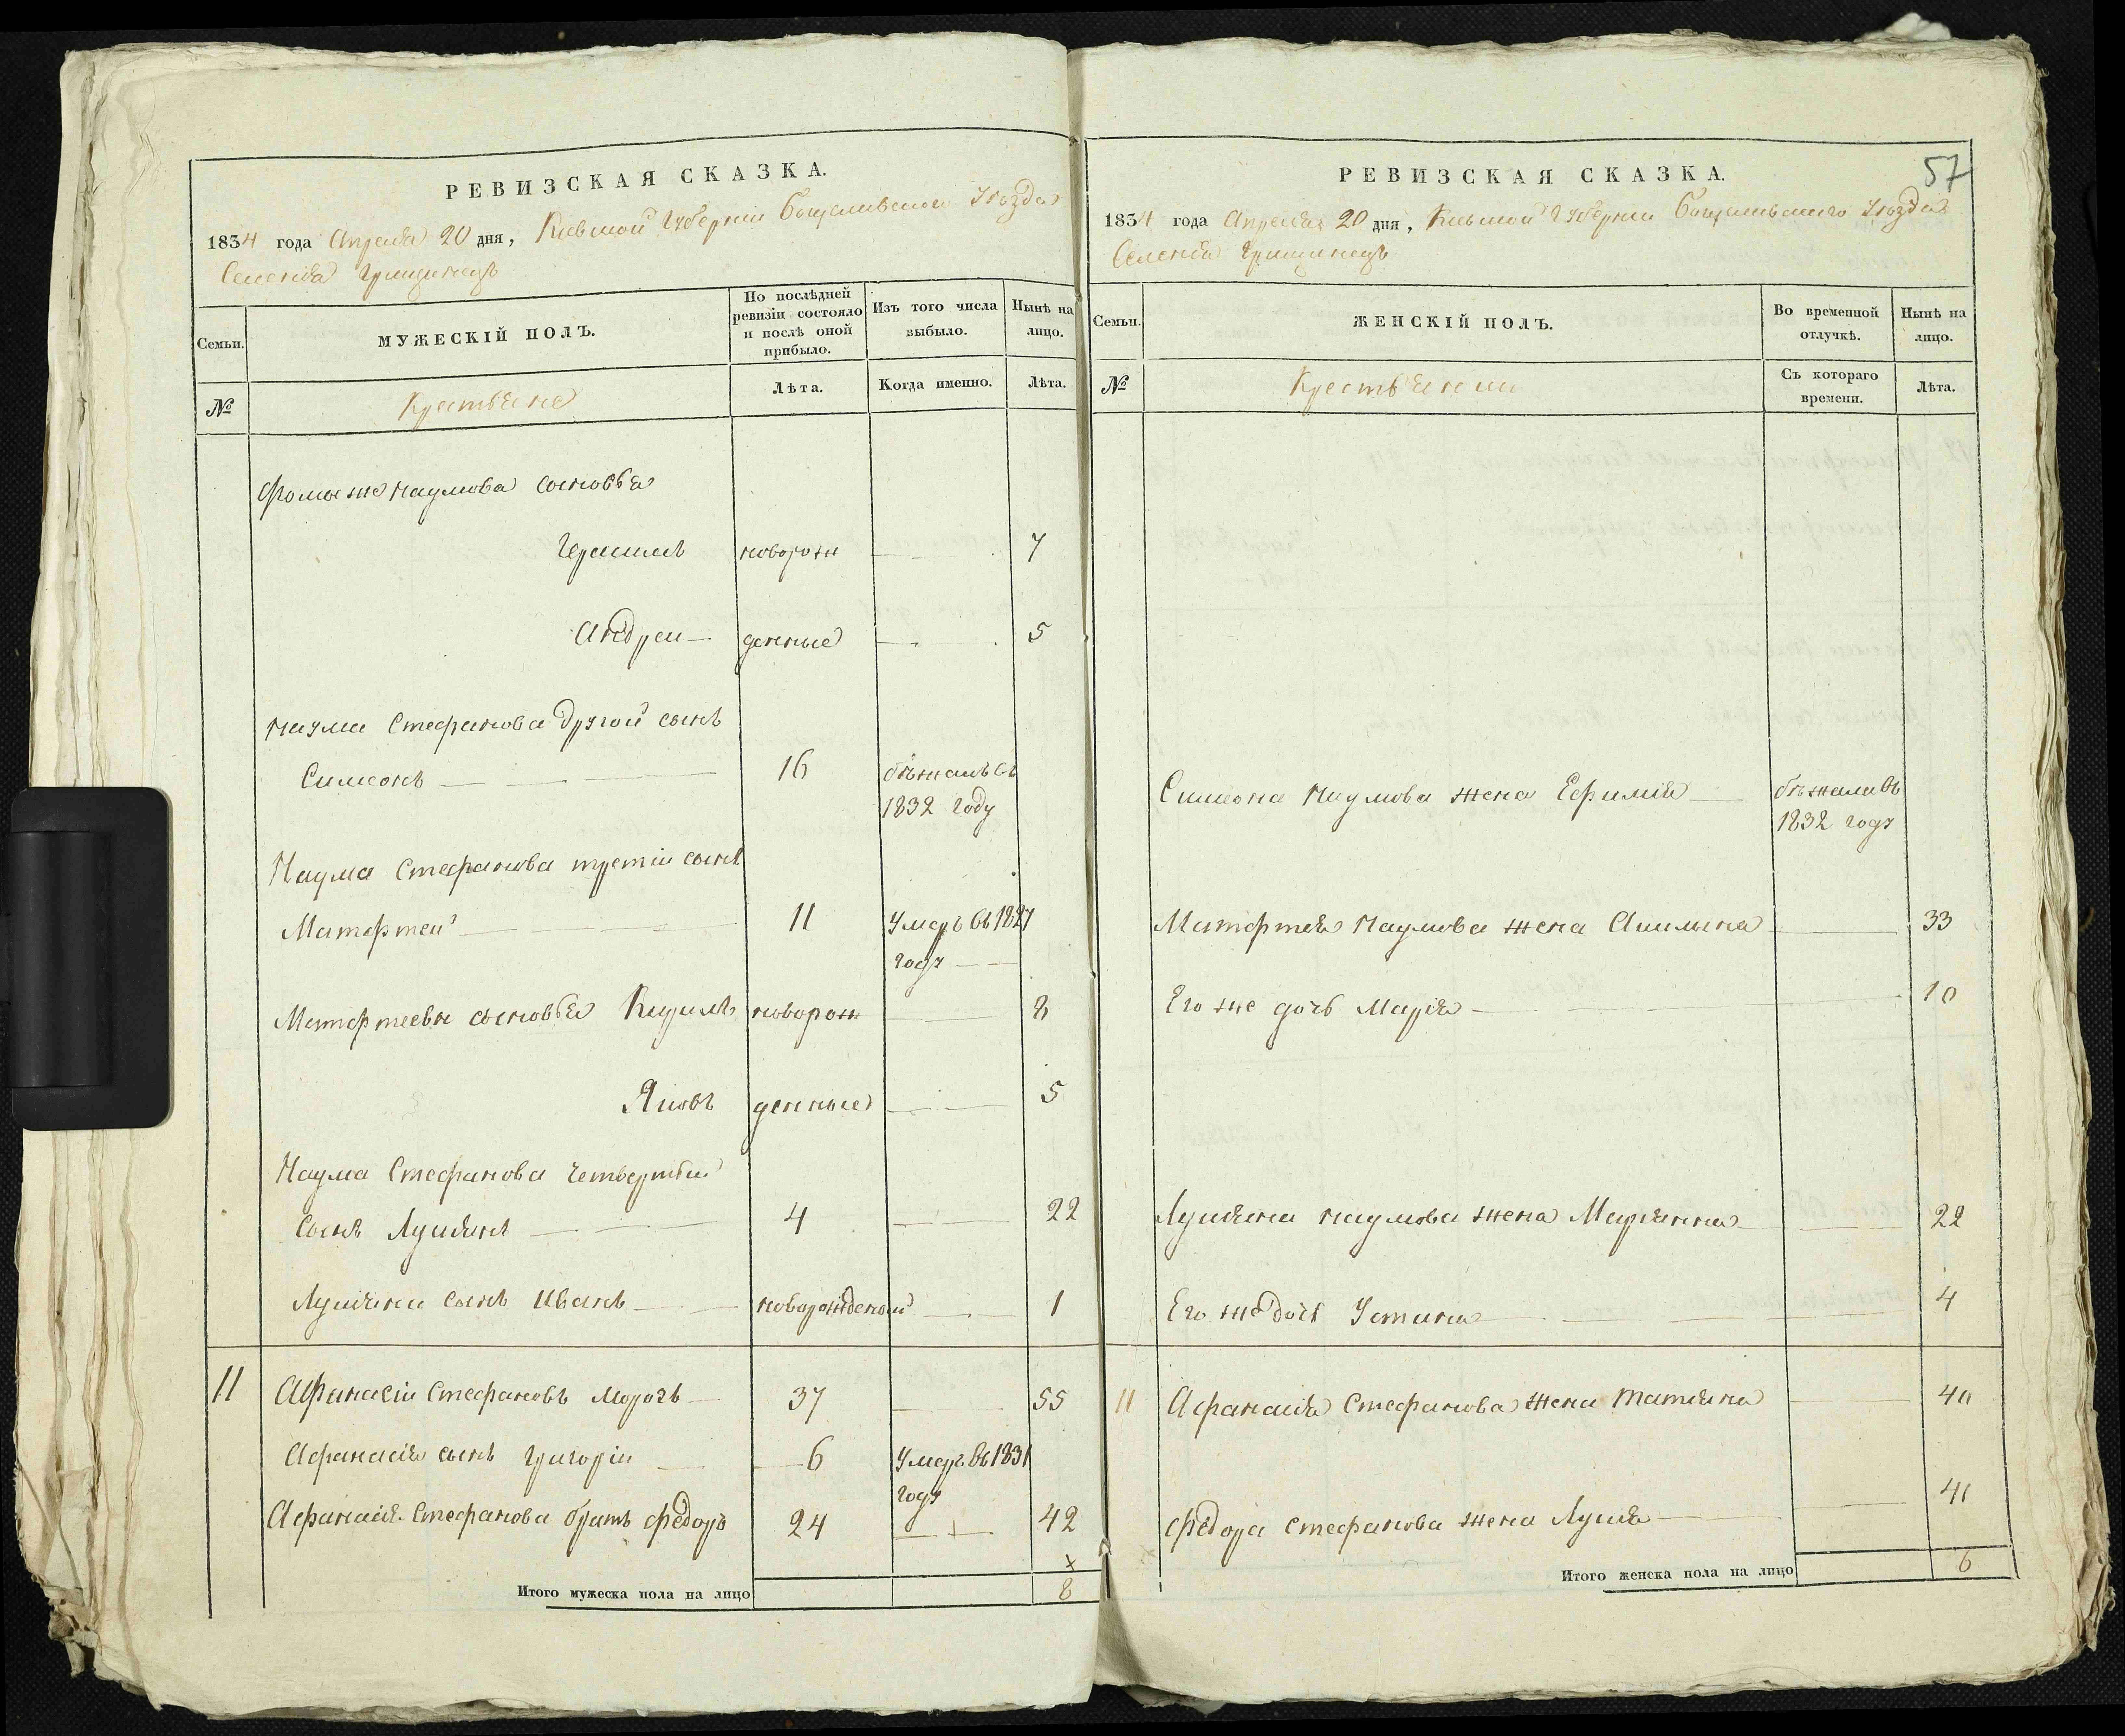 РЕВИЗСКАЯ СКАЗКА.
1834 года Апреля 20 дня, Киевской Губернии Богуславского Уезда
Селения Грищинец
Семьи.
МУЖЕСКІЙ ПОЛЪ.
По послѣдней ревизіи состояло и послѣ оной прибыло.
Изъ того числа выбыло.
Нынѣ на лицо.
№
Крестьяне
Лѣта.
Когда именно.
Лѣта.
Фомы же Наумова сыновья
Герасимъ новорож 7
Андреи денные 5
Наума Стефанова другой сынъ
Симеонъ 16 бѣжалъ въ
1832 году
Наума Стефанова третіи сынъ
Матфтей 11 Умеръ въ 1827
году
Матфтеевы сыновья новорож 8
Яковъ денные 5
Наума Стефанова четвертый
сынъ Лукіянъ 4 22
Лукіяна сынъ Иванъ новорожденый 1
11 Афанасіи Стефановъ Морозъ 37 55
Афанасія сынъ Григоріи 6 Умеръ въ 1831
году
Афанасія Стефанова братъ Федоръ 24 42
Итого мужеска пола на лицо 8
57
РЕВИЗСКАЯ СКАЗКА.
1834 года Апреля 20 дня, Киевской Губернии Богуславского Уезда
Селения Грищинец
Семьи.
ЖЕНСКІЙ ПОЛЪ.
Во временной отлучкѣ.
Нынѣ на лицо.
№
Крестьянки
Съ котораго времени.
Лѣта.
Симеона Наумова жена Ефимія бѣжала въ
1832 году
Матфтея Наумова жена Акилина 33
Его же дочь Марія 10
Лукіяна Наумова жена Маріянна 22
Его же дочь Устина 4
11 Афанасія Стефанова жена Татіяна 40
Федора Стефанова жена Лукія 41
Итого женска пола на лицо 6